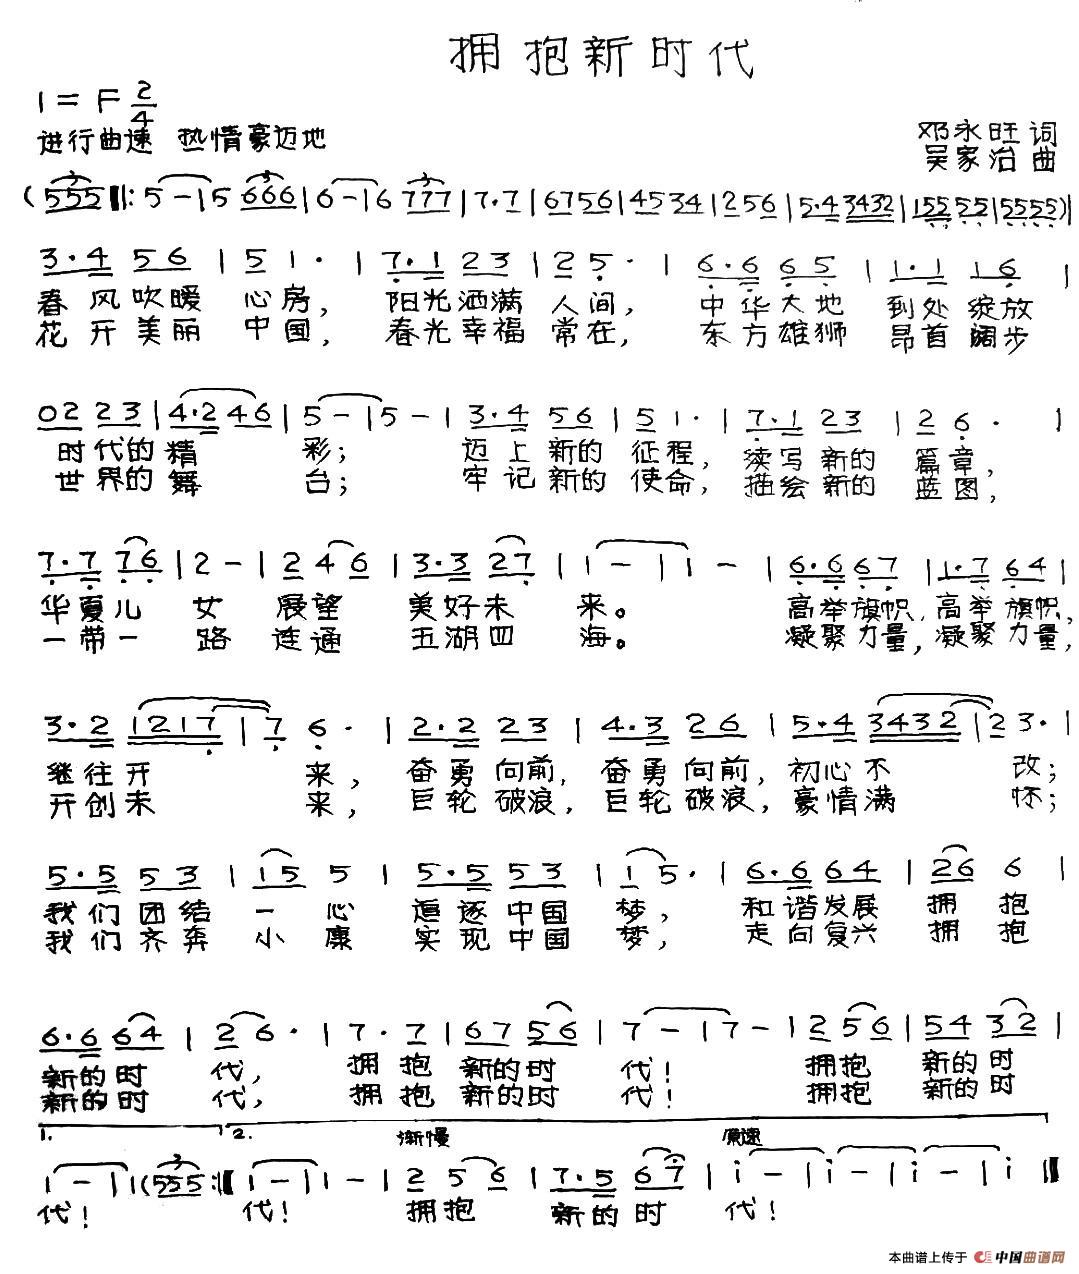 拥抱新时代
1=F 2/4
进行曲速 热情豪迈地
邓永旺 词
吴家治 曲
(555‖:5-|5 666|6-|6 777|7·7|6756|4534|256|5·4 3432|155 55|5555)|
3·4 56|51·|7·1 23|25·|6·6 65|1·1 16|
春风吹暖 心房, 阳光洒满 人间, 中华大地 到处绽放
花开美丽 中国, 春光幸福 常在, 东方雄狮 昂首阔步
02 23|4·2 46|5-|5-|3·4 56|51·|7·1 23|26·|
时代的精 彩; 迈上新的 征程, 续写新的 篇章,
世界的舞 台; 牢记新的 使命, 描绘新的 蓝图,
7·7 76|2-|246|3·3 27|1-|1-|6·6 67|1·7 64|
华夏儿 女 展望 美好未 来。 高举旗帜, 高举旗帜,
一带一 路 连通 五湖四 海。 凝聚力量, 凝聚力量,
3·2 1217|76·|2·2 23|4·3 26|5·4 3432|23·|
继往开 来, 奋勇向前, 奋勇向前, 初心不 改;
开创未 来, 巨轮破浪, 巨轮破浪, 豪情满 怀;
5·5 53|15 5|5·5 53|15·|6·6 64|26 6|
我们团结 一心 追逐中国 梦, 和谐发展 拥抱
我们齐奔 小康 实现中国 梦, 走向复兴 拥抱
6·6 64|26·|7·7|67 56|7-|7-|256|54 32|
新的时 代, 拥抱 新的时 代! 拥抱 新的时
新的时 代, 拥抱 新的时 代! 拥抱 新的时
1. 2. 渐慢 原速
1-|1(555:‖1-|1-|256|7·5 67|i-|i-|i-|i‖
代! 代! 拥抱 新的时 代!
本曲谱上传于 中国曲谱网